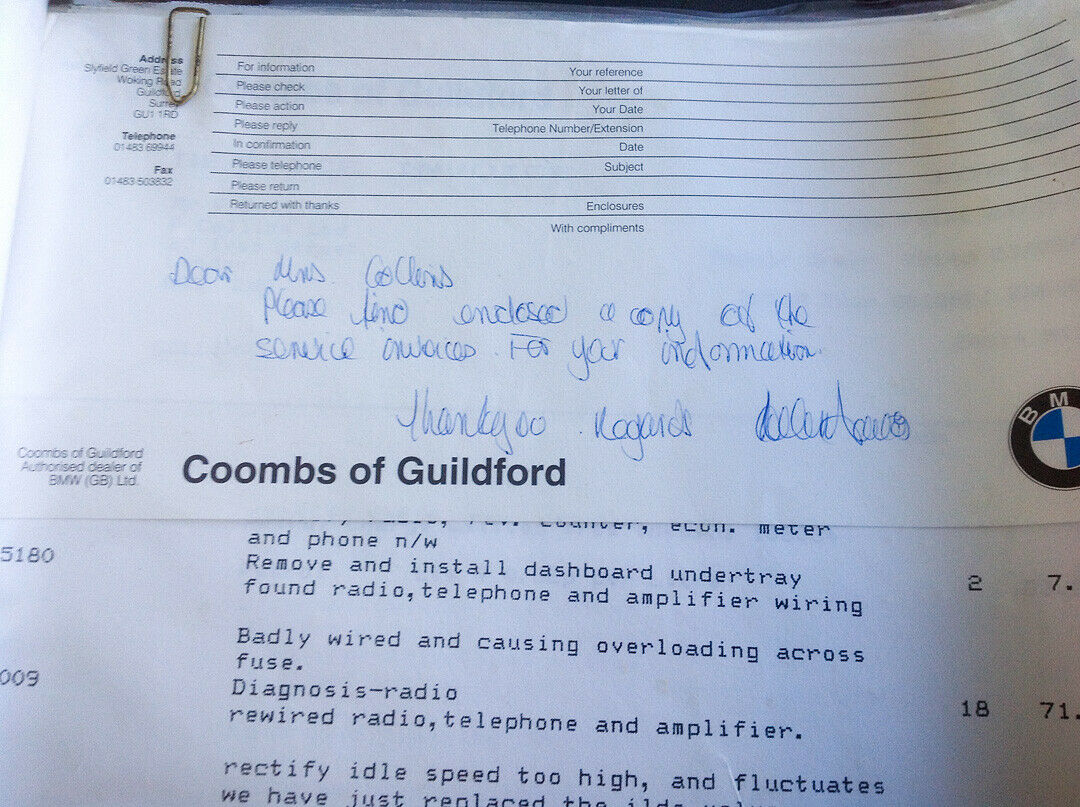 Address
Slyfield Green Estate
Woking Road
Guildford
Surrey
GU1 1RD
Telephone
01483 69944
Fax
01483-503832
For information
Please check
Please action
Please reply
In confirmation
Please telephone
Please return
Returned with thanks
Your reference
Your letter of
Your Date
Telephone Number/Extension
Date
Subject
Enclosures
With compliments
Dear Mrs. Collens
Please find enclosed a copy of the
service invoices. For your information.
Thankyou. Regards
BM
Coombs of Guildford
Authorised dealer of
BMW (GB) Ltd.
Coombs of Guildford
radio, rev. counter, econ. meter
and phone n/w
5180 Remove and install dashboard undertray 2 7.
found radio,telephone and amplifier wiring
Badly wired and causing overloading across
fuse.
009 Diagnosis-radio 18 71.
rewired radio,telephone and amplifier.
rectify idle speed too high, and fluctuates
we have just replaced the